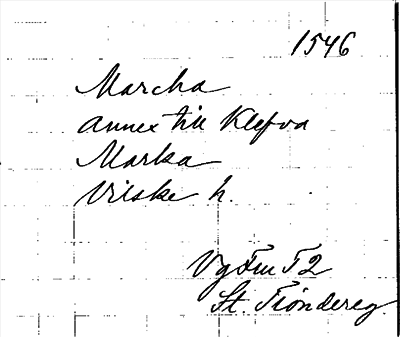 1546
Marcha
annex till Klefva
Marka
Vilske h.
Vg Fru T 2
St. Tiondereg.